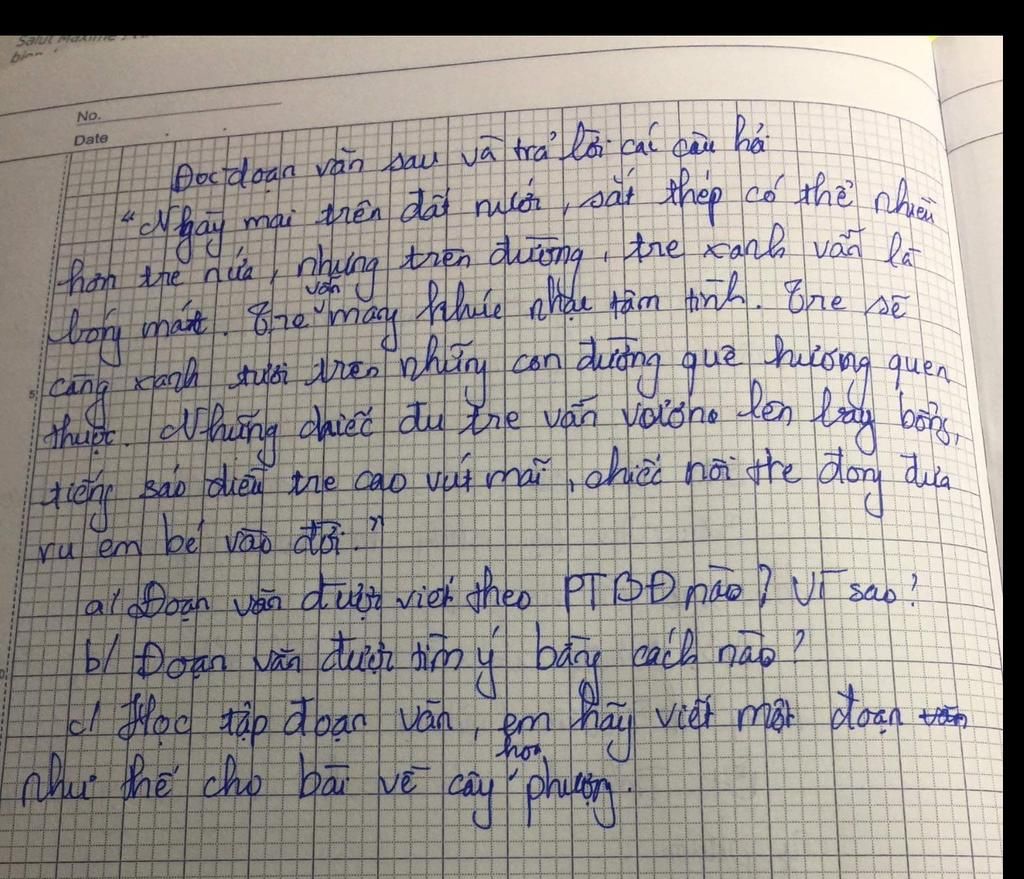 Salut Maxime
No.
Date
Đọc đoạn văn sau và trả lời các câu hỏi
"Ngày mai trên đất nước, sắt thép có thể nhiều
hơn tre nứa, nhưng trên đường, tre xanh vẫn là
bóng mát. Tre vẫn mang khúc nhạc tâm tình. Tre sẽ
càng xanh tươi trên những con đường quê hương quen
thuộc. Những chiếc đu tre vẫn vương lên bay bổng,
tiếng sáo diều tre cao vút mãi, chiếc nôi tre đong đưa
ru em bé vào đời."
a/ Đoạn văn được viết theo PTBĐ nào? Vì sao?
b/ Đoạn văn được tìm ý bằng cách nào?
c/ Học tập đoạn văn, em hãy viết một đoạn văn
như thế cho bài về cây hoa phượng.